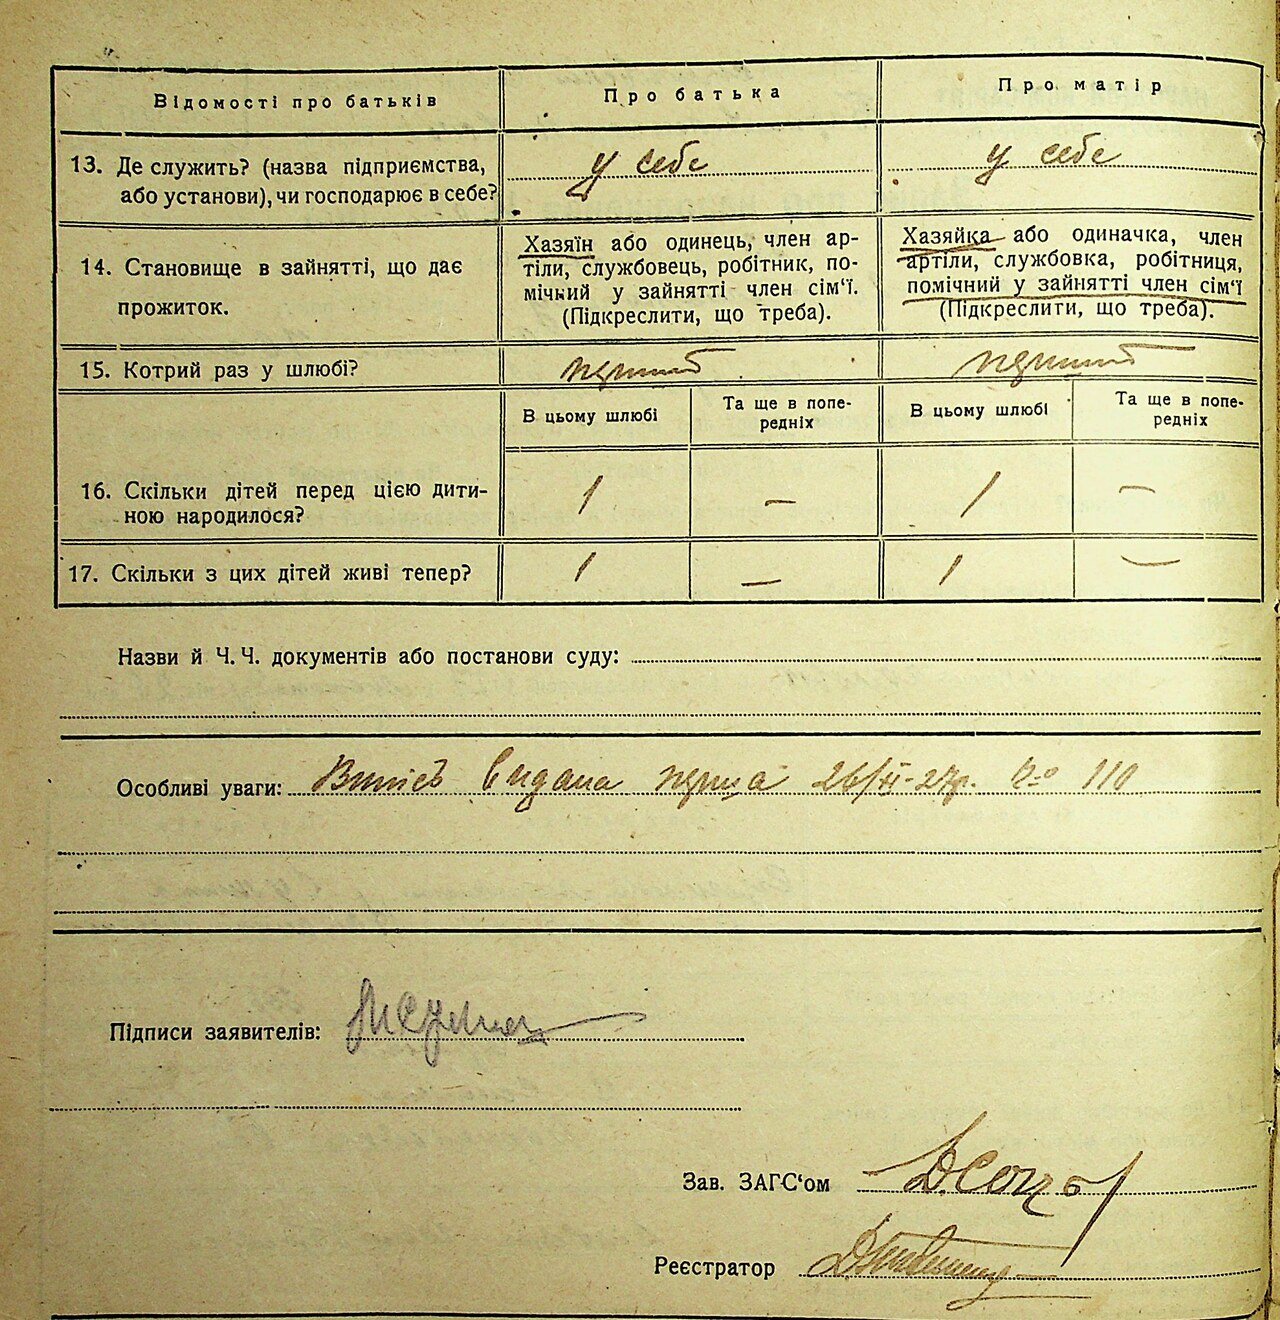 Відомості про батьків
Про батька
Про матір
13. Де служить? (назва підприємства,
або установи), чи господарює в себе?
у себе
у себе
14. Становище в зайнятті, що дає
прожиток.
Хазяїн або одинець, член ар-
тіли, службовець, робітник, по-
мічний у зайнятті член сім'ї.
(Підкреслити, що треба).
Хазяйка або одиначка, член
артіли, службовка, робітниця,
помічний у зайнятті член сім'ї
(Підкреслити, що треба).
15. Котрий раз у шлюбі?
перший
перший
В цьому шлюбі
Та ще в попе-
редніх
В цьому шлюбі
Та ще в попе-
редніх
16. Скільки дітей перед цією дити-
ною народилося?
1
—
1
—
17. Скільки з цих дітей живі тепер?
1
—
1
—
Назви й Ч. Ч. документів або постанови суду:
Особливі уваги: Витяг видана перша 26/XI-27р. № 110
Підписи заявителів:
Зав. ЗАГС'ом
Реєстратор